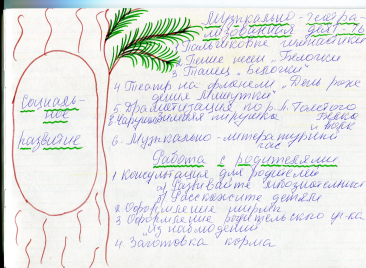 Социаль-
ное
развитие
Музкально-театра-
лизованная деят-ть
1 Пальчиковая гимнастика
2 Пение песни "Белочки"
3 Танец "Белочки"
4 Театр на фланели "День рож
дения Мишутки"
5 Драматизация по р. Л. Толстого
Белка
и волк
6. Музкально-литературный
час
Работа с родителями
1 Консультация для родителей
а) Развивайте любознательность
б) Расскажите детям
2 Оформление ширмы
3 Оформление родительского уг-ка
"Из наблюдений"
4 Заготовка корма